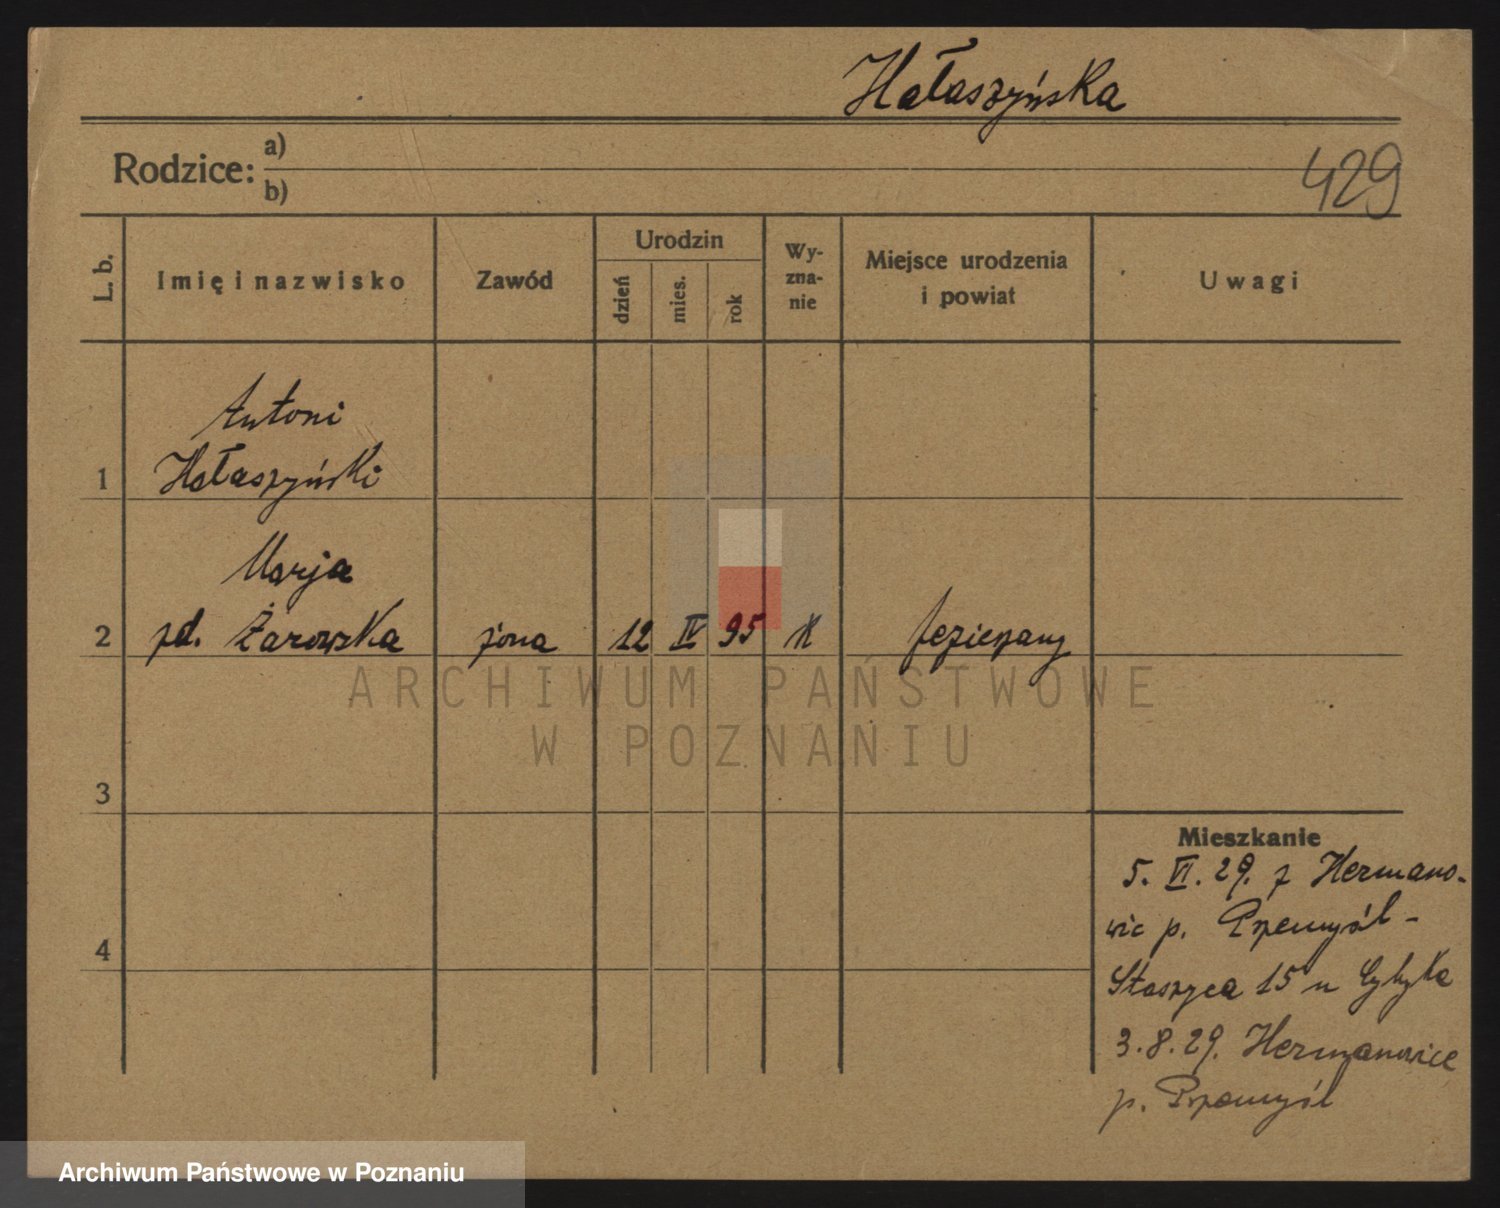 Hałaszyńska
Rodzice: a)
b)
429
L. b.
Imię i nazwisko
Zawód
Urodzin
dzień
mies.
rok
Wy-
zna-
nie
Miejsce urodzenia
i powiat
Uwagi
Antoni
1 Hałaszyński
Marja
2 zd. Żarowska żona 12 IV 95 K
3
4
Mieszkanie
5. VI. 29. z Hermano-
wic p. Przemyśl -
Staszyca 15 u
3.8.29. Hermanowice
p. Przemyśl
ARCHIWUM PAŃSTWOWE
W POZNANIU
Archiwum Państwowe w Poznaniu